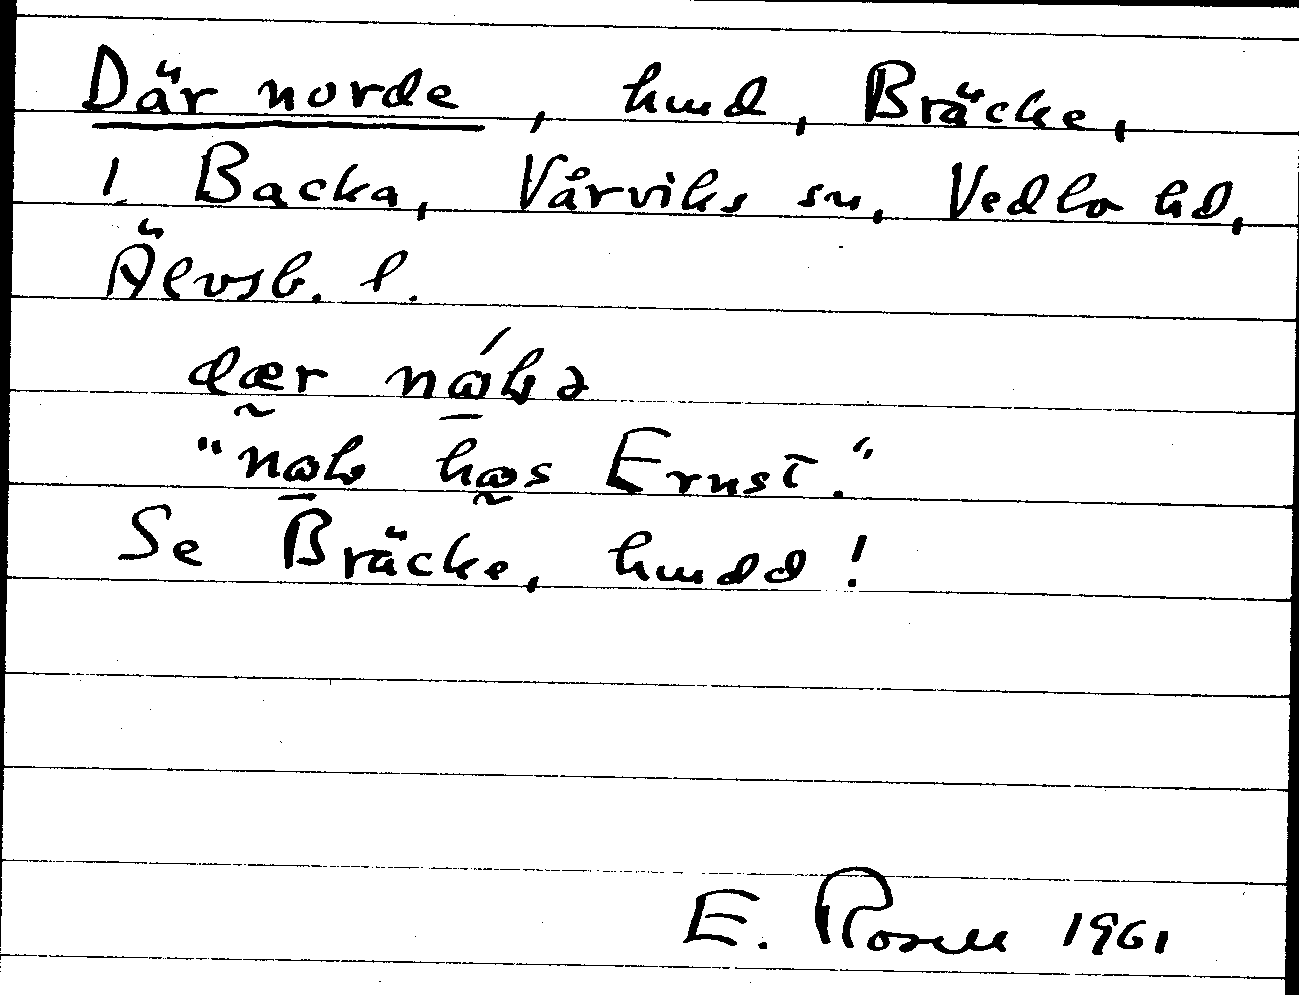 Där norde, hmd, Bräcke,
1 Backa, Vårviks sn, Vedbo hd,
Älvsb. l.
dær
Ernst."
Se Bräcke, hmdd!
E. Rosell 1961